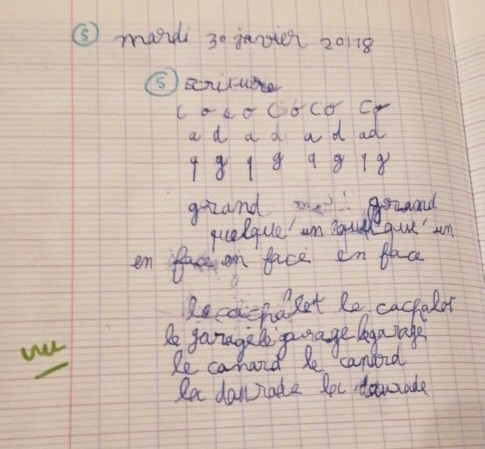 5 mardi 30 janvier 2018
5 Ecriture
c o c o c o c o c o
a d a d a d ad
q g q g q g q g
grand grand
quelqu'un quelqu'un
en face en face en face
le cachalot le cachalot
le garage le garage le garage
vu le canard le canard
la daurade la daurade